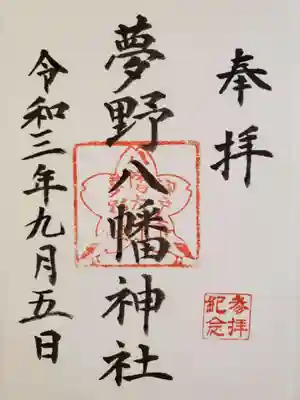 奉拝
夢野八幡神社
令和三年九月五日
参拝
記念